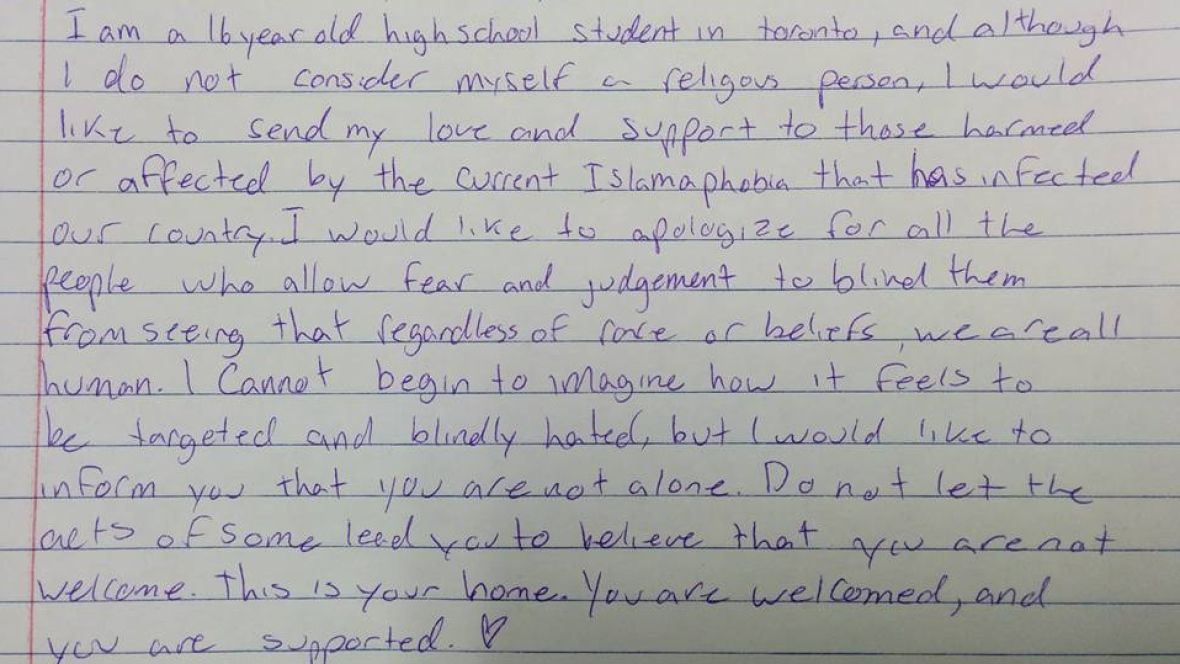 I am a 16 year old high school student in toronto, and although
I do not consider myself a religous person, I would
like to send my love and support to those harmed
or affected by the current Islamaphobia that has infected
our country. I would like to apologize for all the
people who allow fear and judgement to blind them
from seeing that regardless of race or beliefs, we are all
human. I cannot begin to imagine how it feels to
be targeted and blindly hated, but I would like to
inform you that you are not alone. Do not let the
acts of some lead you to believe that you are not
welcome. This is your home. You are welcomed, and
you are supported. ♡